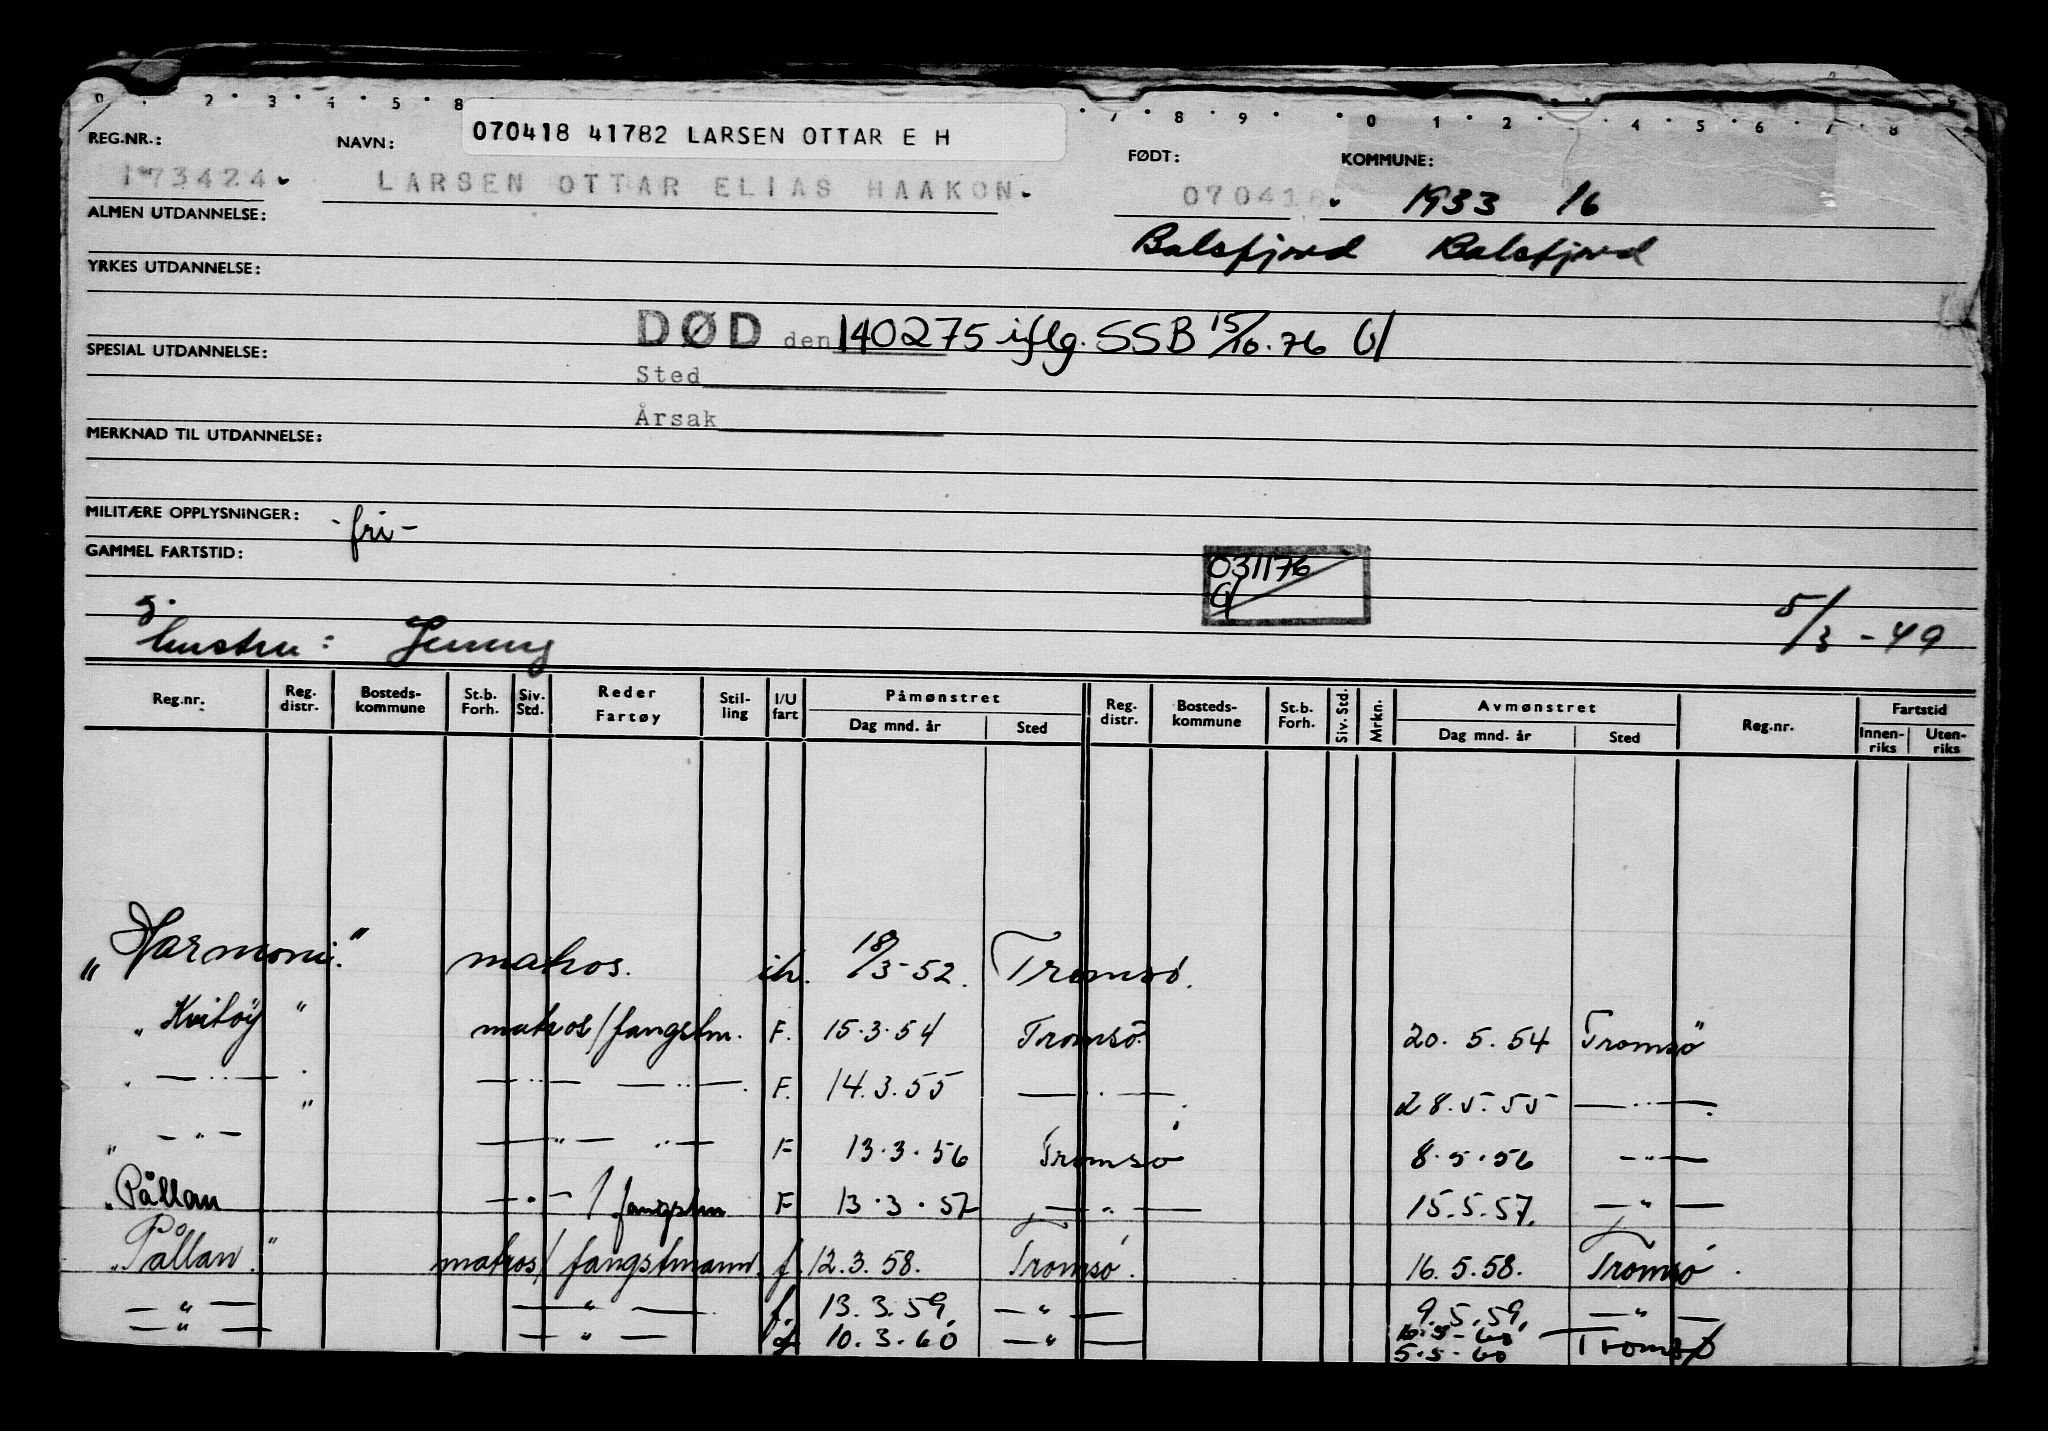 0 . 2 . 3 . 4 . 5 . 8 7 . 8 . 9 . . 0 . 1 . 2 . . 4 . 5 . 6 . 7 . 8
REG.NR.: NAVN: 070418 41782 LARSEN OTTAR E H FØDT: KOMMUNE:
173424. LARSEN OTTAR ELIAS HAAKON. 070418. 1933 16
ALMEN UTDANNELSE: Balsfjord Balsfjord
YRKES UTDANNELSE:
DØD den 140275 iflg. SSB 15/10.76
SPESIAL UTDANNELSE:
Sted
Årsak
MERKNAD TIL UTDANNELSE:
MILITÆRE OPPLYSNINGER: -fri-
GAMMEL FARTSTID:
031176
g. hustru: Jenny 5/3-49
Reg.nr. Reg. distr. Bosteds-kommune St.b. Forh. Siv. Std. Reder Fartøy Stil-ling I/U fart Påmønstret Dag mnd. år Sted Reg. distr. Bosteds-kommune St.b. Forh. Siv. Std. Mrkn. Avmønstret Dag mnd. år Sted Reg.nr. Fartstid Innen-riks Uten-riks
"Harmoni." matros. ih. 18/3-52. Tromsø.
"Kvitøy" matros/fangstm. F. 15.3.54 Tromsö. 20.5.54 Tromsö
" — " — " — " — — " — . F. 14.3.55 — " — . 28.5.55 — " — .
" — " — — " — " — F 13.3.56 Tromsø 8.5.56 — " —
"Pållan — " — / fangstm F 13.3.57 — " — 15.5.57. — " —
"Pållan." matros/fangstmann. f. 12.3.58. Tromsø. 16.5.58. Tromsø.
— " — — " — — f. 13.3.59. — " — 9.5.59. — " —
— " — — " — 10.3.60 — " — 5.5-60 Tromsø